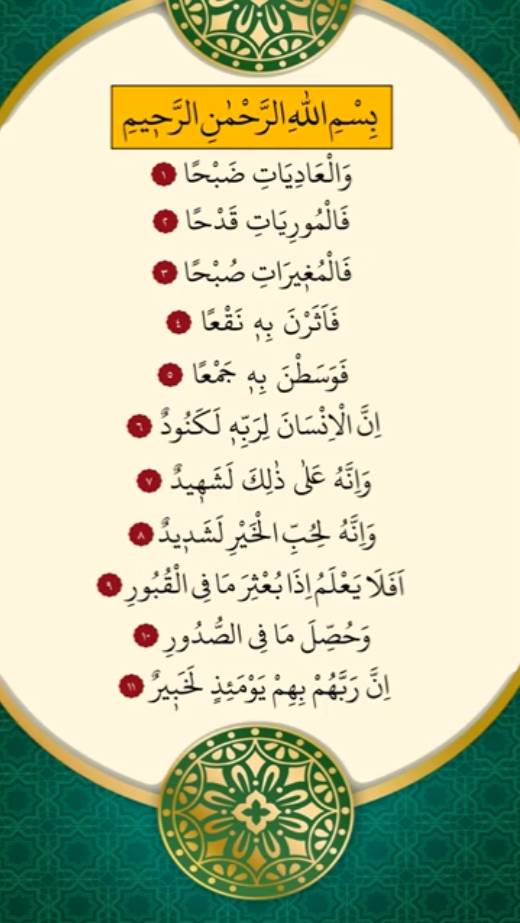 بِسْمِ اللهِ الرَّحْمٰنِ الرَّحٖيمِ
وَالْعَادِيَاتِ ضَبْحًا ١
فَالْمُورِيَاتِ قَدْحًا ٢
فَالْمُغٖيرَاتِ صُبْحًا ٣
فَاَثَرْنَ بِهٖ نَقْعًا ٤
فَوَسَطْنَ بِهٖ جَمْعًا ٥
اِنَّ الْاِنْسَانَ لِرَبِّهٖ لَكَنُودٌ ٦
وَاِنَّهُ عَلٰى ذٰلِكَ لَشَهٖيدٌ ٧
وَاِنَّهُ لِحُبِّ الْخَيْرِ لَشَدٖيدٌ ٨
اَفَلَا يَعْلَمُ اِذَا بُعْثِرَ مَا فِى الْقُبُورِ ٩
وَحُصِّلَ مَا فِى الصُّدُورِ ١٠
اِنَّ رَبَّهُمْ بِهِمْ يَوْمَئِذٍ لَخَبٖيرٌ ١١